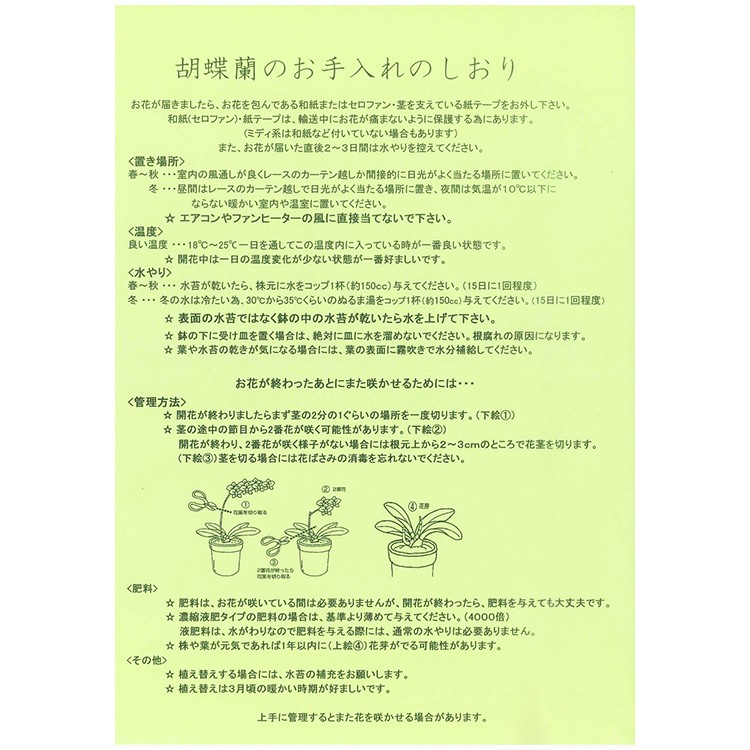 胡蝶蘭のお手入れのしおり
お花が届きましたら、お花を包んである和紙またはセロファン・茎を支えている紙テープをお外し下さい。
和紙(セロファン)・紙テープは、輸送中にお花が痛まないように保護する為にあります。
(ミディ系は和紙など付いていない場合もあります)
また、お花が届いた直後2～3日間は水やりを控えてください。
<置き場所>
春～秋 ・・・室内の風通しが良くレースのカーテン越しか間接的に日光がよく当たる場所に置いてください。
冬 ・・・昼間はレースのカーテン越しで日光がよく当たる場所に置き、夜間は気温が10℃以下に
ならない暖かい室内や温室に置いてください。
☆ エアコンやファンヒーターの風に直接当てないで下さい。
<温度>
良い温度 ・・・18℃～25℃一日を通してこの温度内に入っている時が一番良い状態です。
☆ 開花中は一日の温度変化が少ない状態が一番好ましいです。
<水やり>
春～秋 ・・・ 水苔が乾いたら、株元に水をコップ1杯(約150cc)与えてください。(15日に1回程度)
冬 ・・・ 冬の水は冷たい為、30℃から35℃くらいのぬるま湯をコップ1杯(約150cc)与えてください。(15日に1回程度)
☆ 表面の水苔ではなく鉢の中の水苔が乾いたら水を上げて下さい。
☆ 鉢の下に受け皿を置く場合は、絶対に皿に水を溜めないでください。根腐れの原因になります。
☆ 葉や水苔の乾きが気になる場合には、葉の表面に霧吹きで水分補給してください。
お花が終わったあとにまた咲かせるためには・・・
<管理方法>
☆ 開花が終わりましたらまず茎の2分の1ぐらいの場所を一度切ります。(下絵①)
☆ 茎の途中の節目から2番花が咲く可能性があります。(下絵②)
開花が終わり、2番花が咲く様子がない場合には根元上から2～3cmのところで花茎を切ります。
(下絵③)茎を切る場合には花ばさみの消毒を忘れないでください。
①
花茎を切り取る
② 2番花
③
2番花が終ったら
花茎を切り取る
④ 花芽
<肥料>
☆ 肥料は、お花が咲いている間は必要ありませんが、開花が終わったら、肥料を与えても大丈夫です。
☆ 濃縮液肥タイプの肥料の場合は、基準より薄めて与えてください。(4000倍)
液肥料は、水がわりなので肥料を与える際には、通常の水やりは必要ありません。
☆ 株や葉が元気であれば1年以内に(上絵④)花芽がでる可能性があります。
<その他>
☆ 植え替えする場合には、水苔の補充をお願いします。
☆ 植え替えは3月頃の暖かい時期が好ましいです。
上手に管理するとまた花を咲かせる場合があります。